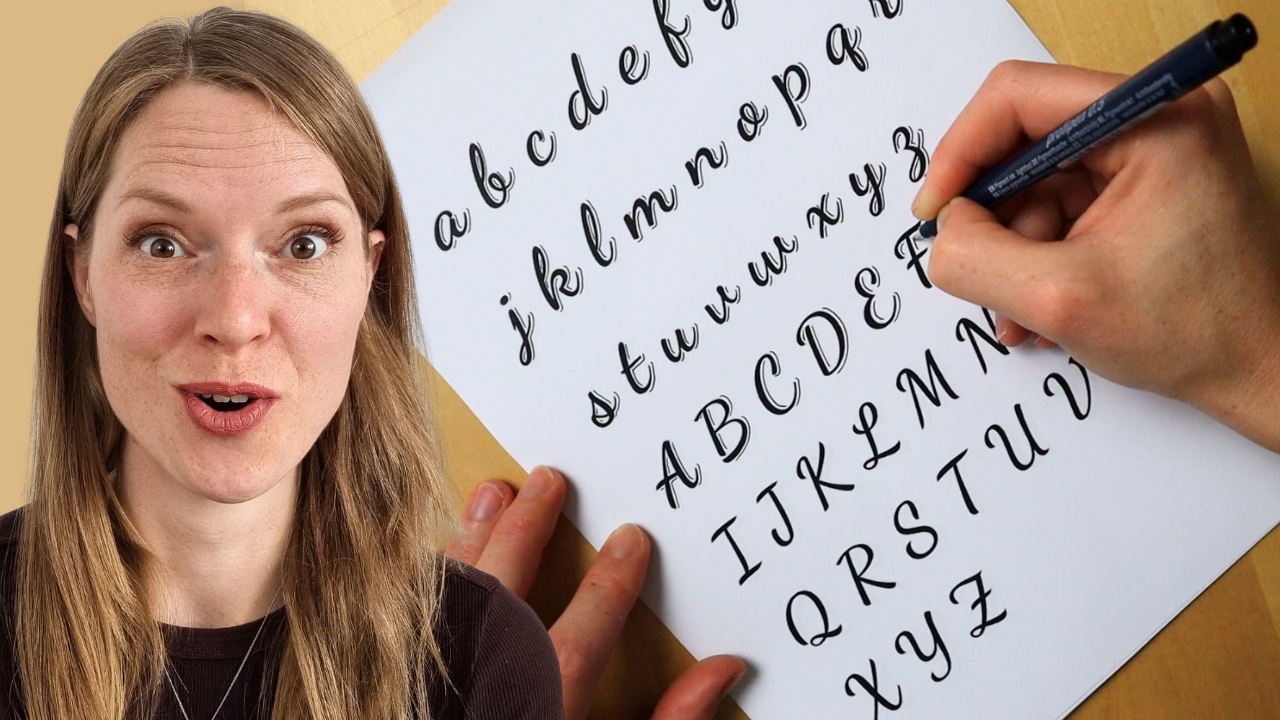 a b c d e f g
j k l m n o p q r
s t u v w x y z
A B C D E F
I J K L M N
Q R S T U V
X Y Z
propen 0.5